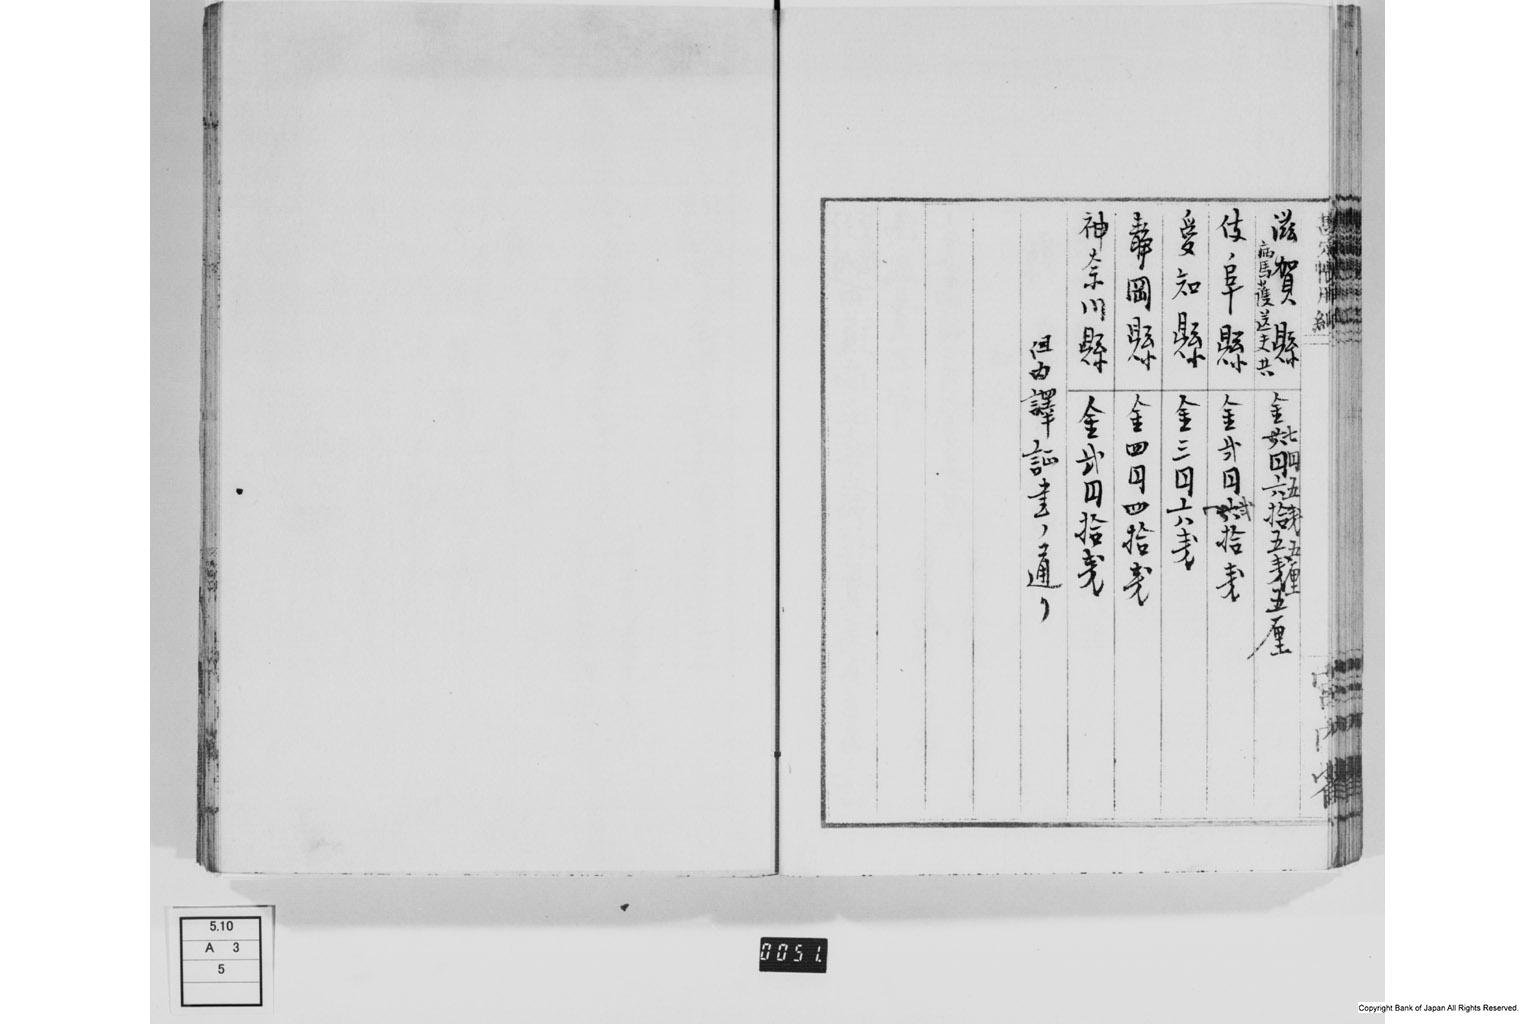 滋賀縣 金七円五銭五厘
病馬護送夫共 六拾五銭五厘
岐阜縣 金弐円弐拾銭
愛知縣 金三円六銭
静岡縣 金四円四拾銭
神奈川縣 金弐円拾銭
但内譯証書ノ通リ
宮内省
5.10
A 3
5
0051.
Copyright Bank of Japan All Rights Reserved.